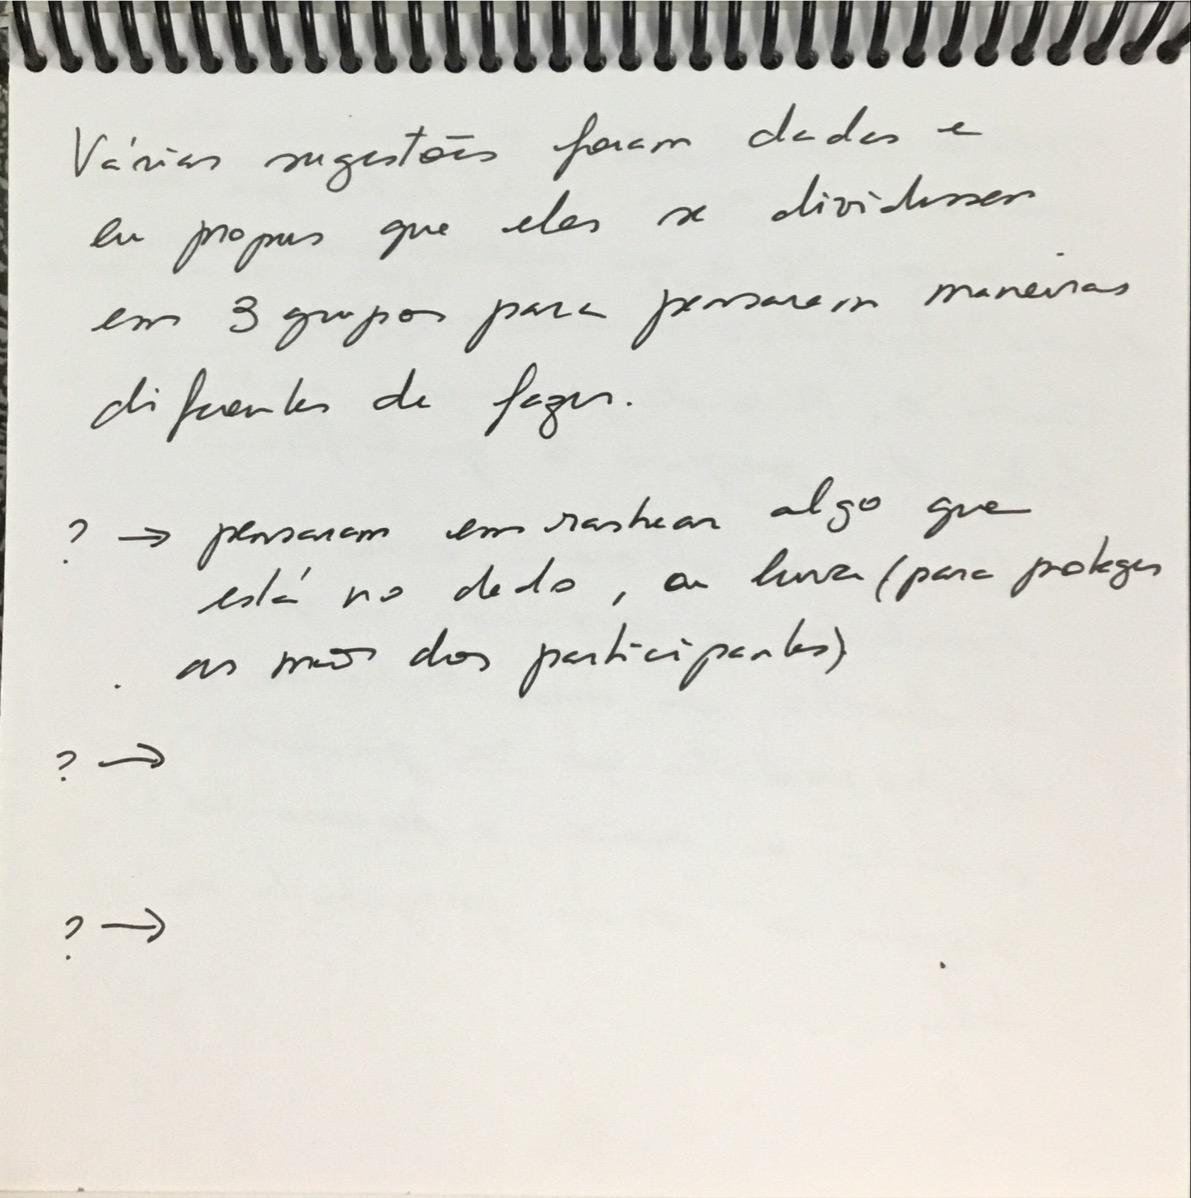 Várias sugestões foram dadas e
eu propus que eles se dividissem
em 3 grupos para pensarem maneiras
diferentes de fazer.
? → pensaram em rastrear algo que
está no dedo, ou luva (para proteger
as mãos dos participantes)
? →
? →